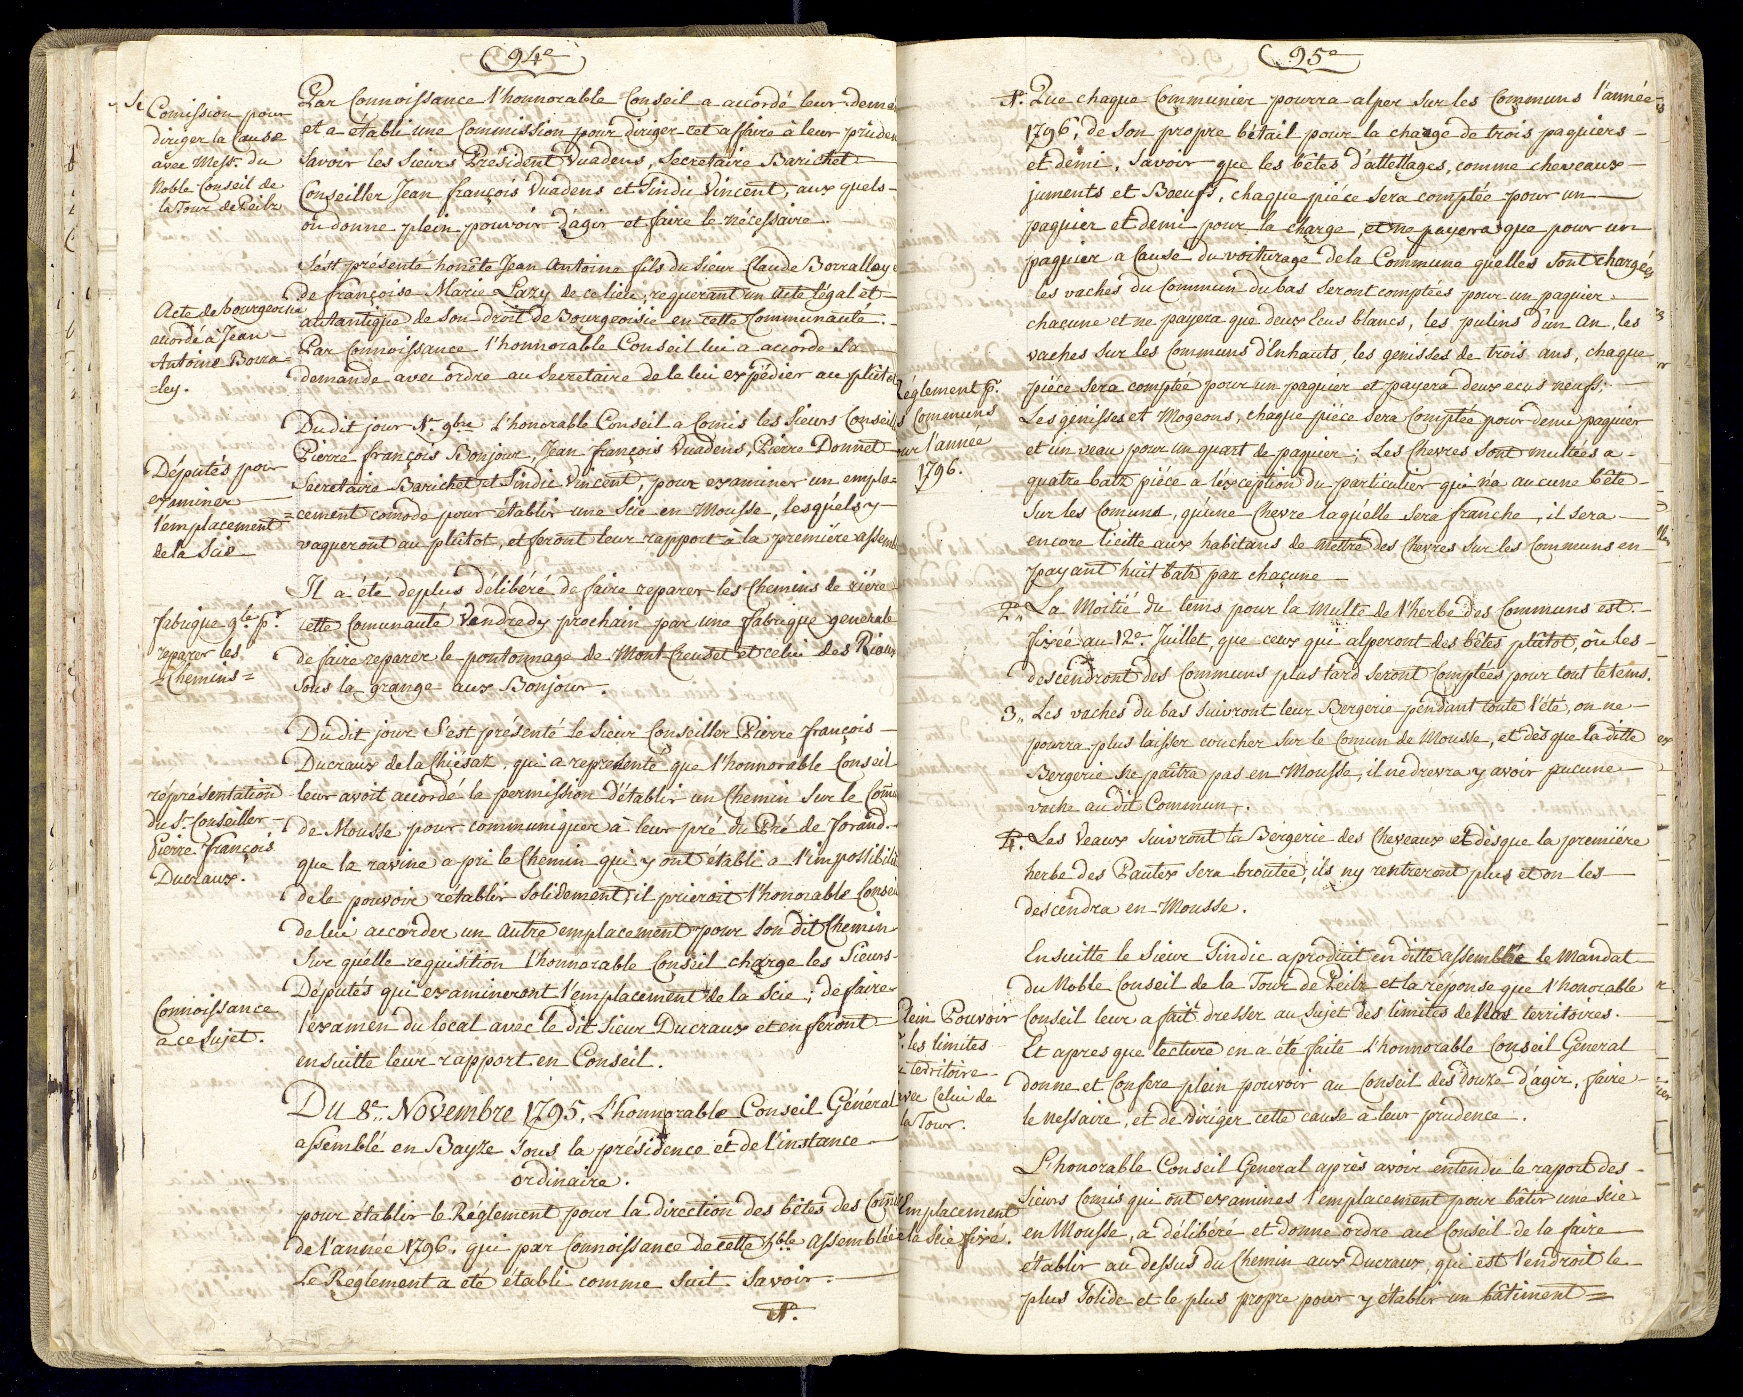 94e
Comission pour
diriger la Cause
avec Messrs. du
Noble Conseil de
la Tour de Peilz
Par Connoissance l'honnorable Conseil a accordé leur deme
et a établi une Commission pour diriger cet affaire à leur pruden
Savoir les Sieurs Président Vuadens, Secretaire Barichet
Conseiller Jean françois Vuadens et Sindic Vincent, aux quels
on donne plein pouvoir d'agir et faire le nécessaire.
Acte de bourgeoisie
accordé à Jean
Antoine Borra=
=ley.
S'ést présenté honête Jean Antoine fils du Sieur Claude Borralley
de françoise Marie Lazy de ce lieu, requerant un acte légal et
autantique de son droit de Bourgeoisie en cette Communauté.
Par Connoissance l'honnorable Conseil lui a accordé Sa
demande avec ordre au Secretaire de le lui expédier au plûtot
Députés pour
examiner
l'emplacement
de la Scie
Du dit jour 1r. 9bre L'honorable Conseil a Comis les Sieurs Conseil
Pierre françois Bonjour, Jean françois Vuadens, Pierre Donnet
Secretaire Barichet et Sindic Vincent, pour examiner un empla=
=cement comode pour établir une Scie en Mousse, lesquéls y
vaqueront au plûtot, et feront leur rapport à la premiére assem
fabrique gle. pr.
reparer les
=Chemins=
Il a été de plus délibéré de faire reparer les Chemins de riére
cette Comunauté Vendredy prochain par une fabrique generale
de faire reparer le pontonnage de Mont Creuset et celui des Riaux
Sous la grange aux Bonjour.
répréséntation
du Sr. Conseiller
Pierre François
Ducraux.
Du dit jour S'est présenté le Sieur Conseiller Pierre françois
Ducraux de la Chiésaz, qui a représenté que l'honnorable Conseil
leur avoit accordé la permission d'établir un Chemin Sur le Comu
de Mousse pour communiquer à leur pré du Pré de Jorand.
que la ravine a pri le Chemin qui y ont établi a l'impossibilit
de le pouvoir rétablir Solidement, il prieroit l'honorable Consei
de lui accorder un autre emplacement pour Son dit Chemin
Connoissance
a ce Sujet.
Sur quélle requisition l'honnorable Conseil charge les Sieurs
Députés qui examineront l'emplacement de la Scie ; de faire
l'examen du local avec le dit Sieur Ducraux et en feront
ensuitte leur rapport en Conseil.
Du 8e. Novembre 1795. L'honnorable Conseil Général
assemblé en Bayze Sous la présidence et de l'instance
ordinaire.
pour établir le Réglement pour la direction des bêtes des Comu
de l'année 1796. qui par Connoissance de cette hble. Assemblée
Le Réglement a été établi comme suit. Savoir.
1r.
95e
églement pr.
s Communs
our l'année
1796.
1r. Que chaque Communier pourra alper sur les Communs l'année
1796, de Son propre bétail pour la charge de trois paquiers
et demi, Savoir que les bêtes d'attellages, comme cheveaux
juments et Boeufs, chaque piéce sera comptée pour un
paquier et demi pour la charge, et ne payera que pour un
paquier a Cause du voiturage de la Commune quelles sont chargées
les vaches du Commun du bas seront comptées pour un paquier
chacune et ne payera que deux Ecus blancs, les pulins d'un An, les
vaches sur les Communs d'Enhauts, les genisses de trois ans, chaque
piéce sera comptée pour un paquier et payera deux ecus neufs.
Les genisses et Mogeons, chaque piéce sera Comptée pour demi paquier
et un veau pour un quart de paquier ; Les Chevres sont multées a
quatre batz piéce a l'éxception du particulier qui n'a aucune bête
Sur les Comuns, qu'une Chevre laquélle Sera franche, il sera
encore licitte aux habitans de Mettre des Chevres sur les Communs en
payant huit batz par chacune
2e. La Moitié du tems pour la Multe de l'herbe des Communs est
fixée au 12e. Juillet, que ceux qui alperont des bêtes plûtot, ou les
descendront des Communs plus tard seront Comptées pour tout le tems.
3„ Les vaches du bas Suivront leur Bergerie pendant toute l'été, on ne
pourra plus laisser coucher sur le Comun de Mousse, et dès que la ditte
Bergerie ne paîtra pas en Mousse, il ne devra y avoir aucune
vache au dit Commun.
4. Les Veaux Suivront la Bergerie des Cheveaux et dès que la premiére
herbe des Pautex sera broutée, ils n'y rentreront plus et on les
descendra en Mousse.
lein Pouvoir
r. les limites
u territoire
avec Celui de
la Tour.
Ensuitte le Sieur Sindic a produit en ditte assemblée le Mandat
du Noble Conseil de la Tour de Peilz et la réponse que l'honorable
Conseil leur a fait dresser au sujet des limites de Nos territoires.
Et apres que lecture en a été faite L'honnorable Conseil Général
donne et Confere plein pouvoir au Conseil des douze d'agir, faire
le nessaire, et de diriger cette cause à leur prudence.
Emplacement
e la Scie fixé.
L'honorable Conseil General aprés avoir entendu le raport des
Sieurs Comis qui ont examinés l'emplacement pour bâtir une Scie
en Mousse, a délibéré et donne ordre au Conseil de la faire
établir au dessus du Chemin aux Ducraux, qui est l'endroit le
plus Solide et le plus propre pour y établir un bâtiment=